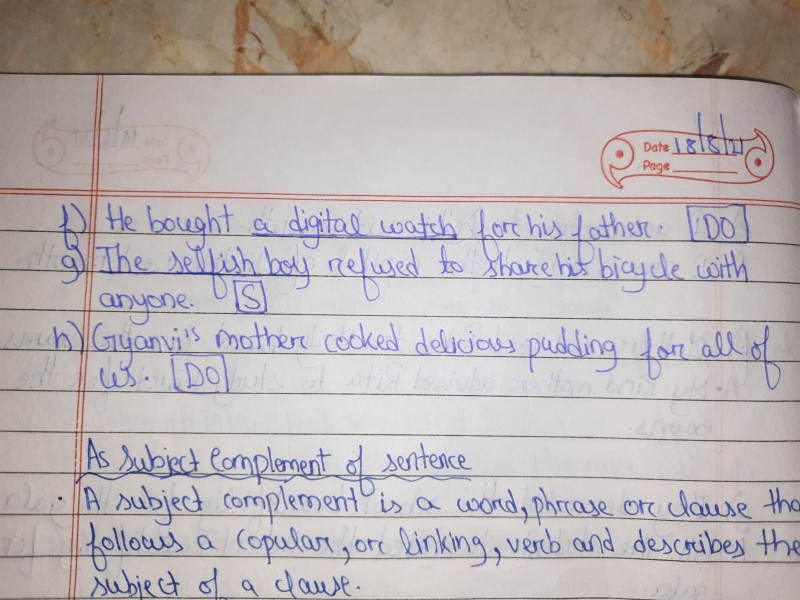 Date 18/8/21
Page
f) He bought a digital watch for his father. DO
g) The selfish boy refused to share his bicycle with
anyone. S
h) Gyanvi's mother cooked delicious pudding for all of
us. DO
As Subject Complement of sentence
• A subject complement is a word, phrase or clause tha
follows a copular, or linking, verb and describes the
subject of a clause.